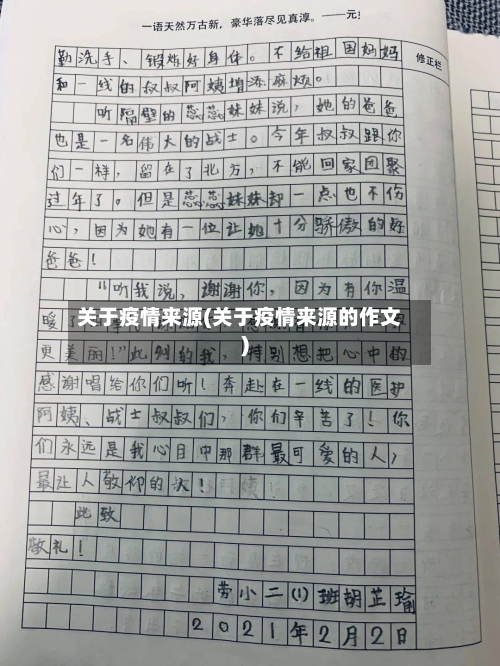 一语天然万古新，豪华落尽见真淳。——元!
修正栏
勤洗手、锻炼好身体。不给祖国妈妈
和一线的叔叔阿姨增添麻烦。
听隔壁的蕊蕊妹妹说，她的爸爸
也是一名伟大的战士。今年叔叔跟你
们一样，留在了北方，不能回家团聚
过年了。但是蕊蕊妹妹却一点也不伤
心，因为她有一位让她十分骄傲的好
爸爸！
"听我说，谢谢你，因为有你温
关于疫情来源(关于疫情来源的作文
)
暖了
更美丽！"此刻的我，特别想把心中的
感谢唱给你们听！奔赴在一线的医护
阿姨、战士叔叔们，你们辛苦了！你
们永远是我心目中那群最可爱的人，
最让人敬仰的人！
此致
敬礼！
劳小二(1)班胡芷瑜
2021年2月2日